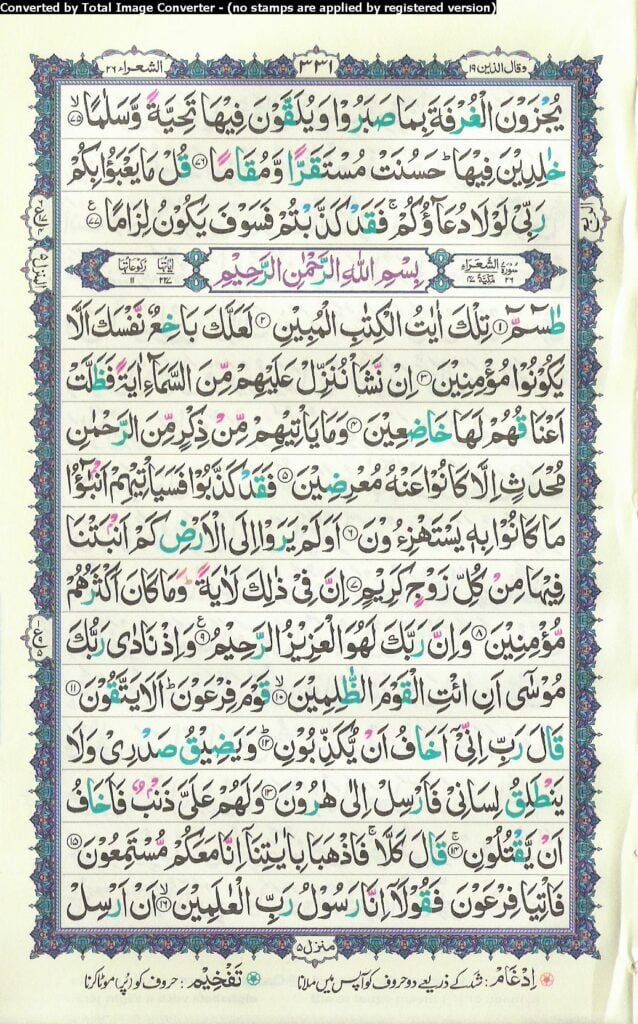 Converted by Total Image Converter - (no stamps are applied by registered version)
وقال الذین ۱۹ ۳۳۱ الشعراء ۲۶
یُجْزَوْنَ الْغُرْفَةَ بِمَا صَبَرُوْا وَیُلَقَّوْنَ فِیْهَا تَحِیَّةً وَّسَلٰمًا ۙ‏﴿۷۵﴾
خٰلِدِیْنَ فِیْهَا ؕ حَسُنَتْ مُسْتَقَرًّا وَّمُقَامًا ﴿۷۶﴾ قُلْ مَا یَعْبَؤُا بِكُمْ
رَبِّیْ لَوْلَا دُعَآؤُكُمْ ۚ فَقَدْ كَذَّبْتُمْ فَسَوْفَ یَكُوْنُ لِزَامًا ﴿۷۷﴾
سورة الشعراء ۲۶ مكیة ۴۷ بِسْمِ اللّٰهِ الرَّحْمٰنِ الرَّحِیْمِ اٰیاتها ۲۲۷ ركوعاتها ۱۱
طٰسٓمّٓ ﴿۱﴾ تِلْكَ اٰیٰتُ الْكِتٰبِ الْمُبِیْنِ ﴿۲﴾ لَعَلَّكَ بَاخِعٌ نَّفْسَكَ اَلَّا
یَكُوْنُوْا مُؤْمِنِیْنَ ﴿۳﴾ اِنْ نَّشَاْ نُنَزِّلْ عَلَیْهِمْ مِّنَ السَّمَآءِ اٰیَةً فَظَلَّتْ
اَعْنَاقُهُمْ لَهَا خَاضِعِیْنَ ﴿۴﴾ وَمَا یَاْتِیْهِمْ مِّنْ ذِكْرٍ مِّنَ الرَّحْمٰنِ
مُحْدَثٍ اِلَّا كَانُوْا عَنْهُ مُعْرِضِیْنَ ﴿۵﴾ فَقَدْ كَذَّبُوْا فَسَیَاْتِیْهِمْ اَنْۢبٰٓؤُا
مَا كَانُوْا بِهٖ یَسْتَهْزِءُوْنَ ﴿۶﴾ اَوَلَمْ یَرَوْا اِلَی الْاَرْضِ كَمْ اَنْۢبَتْنَا
فِیْهَا مِنْ كُلِّ زَوْجٍ كَرِیْمٍ ﴿۷﴾ اِنَّ فِیْ ذٰلِكَ لَاٰیَةً ؕ وَمَا كَانَ اَكْثَرُهُمْ
مُّؤْمِنِیْنَ ﴿۸﴾ وَاِنَّ رَبَّكَ لَهُوَ الْعَزِیْزُ الرَّحِیْمُ ﴿۹﴾ وَاِذْ نَادٰی رَبُّكَ
مُوْسٰۤی اَنِ ائْتِ الْقَوْمَ الظّٰلِمِیْنَ ۙ﴿۱۰﴾ قَوْمَ فِرْعَوْنَ ؕ اَلَا یَتَّقُوْنَ ﴿۱۱﴾
قَالَ رَبِّ اِنِّیْۤ اَخَافُ اَنْ یُّكَذِّبُوْنِ ؕ﴿۱۲﴾ وَیَضِیْقُ صَدْرِیْ وَلَا
یَنْطَلِقُ لِسَانِیْ فَاَرْسِلْ اِلٰی هٰرُوْنَ ﴿۱۳﴾ وَلَهُمْ عَلَیَّ ذَنْۢبٌ فَاَخَافُ
اَنْ یَّقْتُلُوْنِ ۚ﴿۱۴﴾ قَالَ كَلَّا ۚ فَاذْهَبَا بِاٰیٰتِنَاۤ اِنَّا مَعَكُمْ مُّسْتَمِعُوْنَ ﴿۱۵﴾
فَاْتِیَا فِرْعَوْنَ فَقُوْلَاۤ اِنَّا رَسُوْلُ رَبِّ الْعٰلَمِیْنَ ۙ﴿۱۶﴾ اَنْ اَرْسِلْ
منزل ۵
اِدْغَام : شد کے ذریعے دو حروف کو آپس میں ملانا تَفْخِیْم : حروف کو (پُر) موٹا کرنا